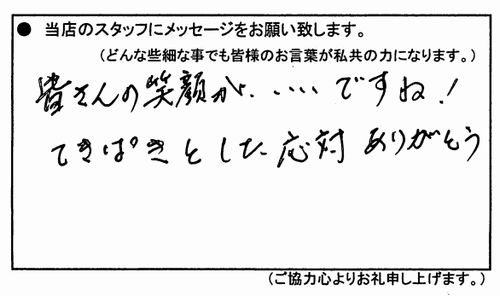 ● 当店のスタッフにメッセージをお願い致します。
(どんな些細な事でも皆様のお言葉が私共の力になります。)
皆さんの笑顔が、‥‥ですね!
てきぱきとした応対 ありがとう
(ご協力心よりお礼申し上げます。)